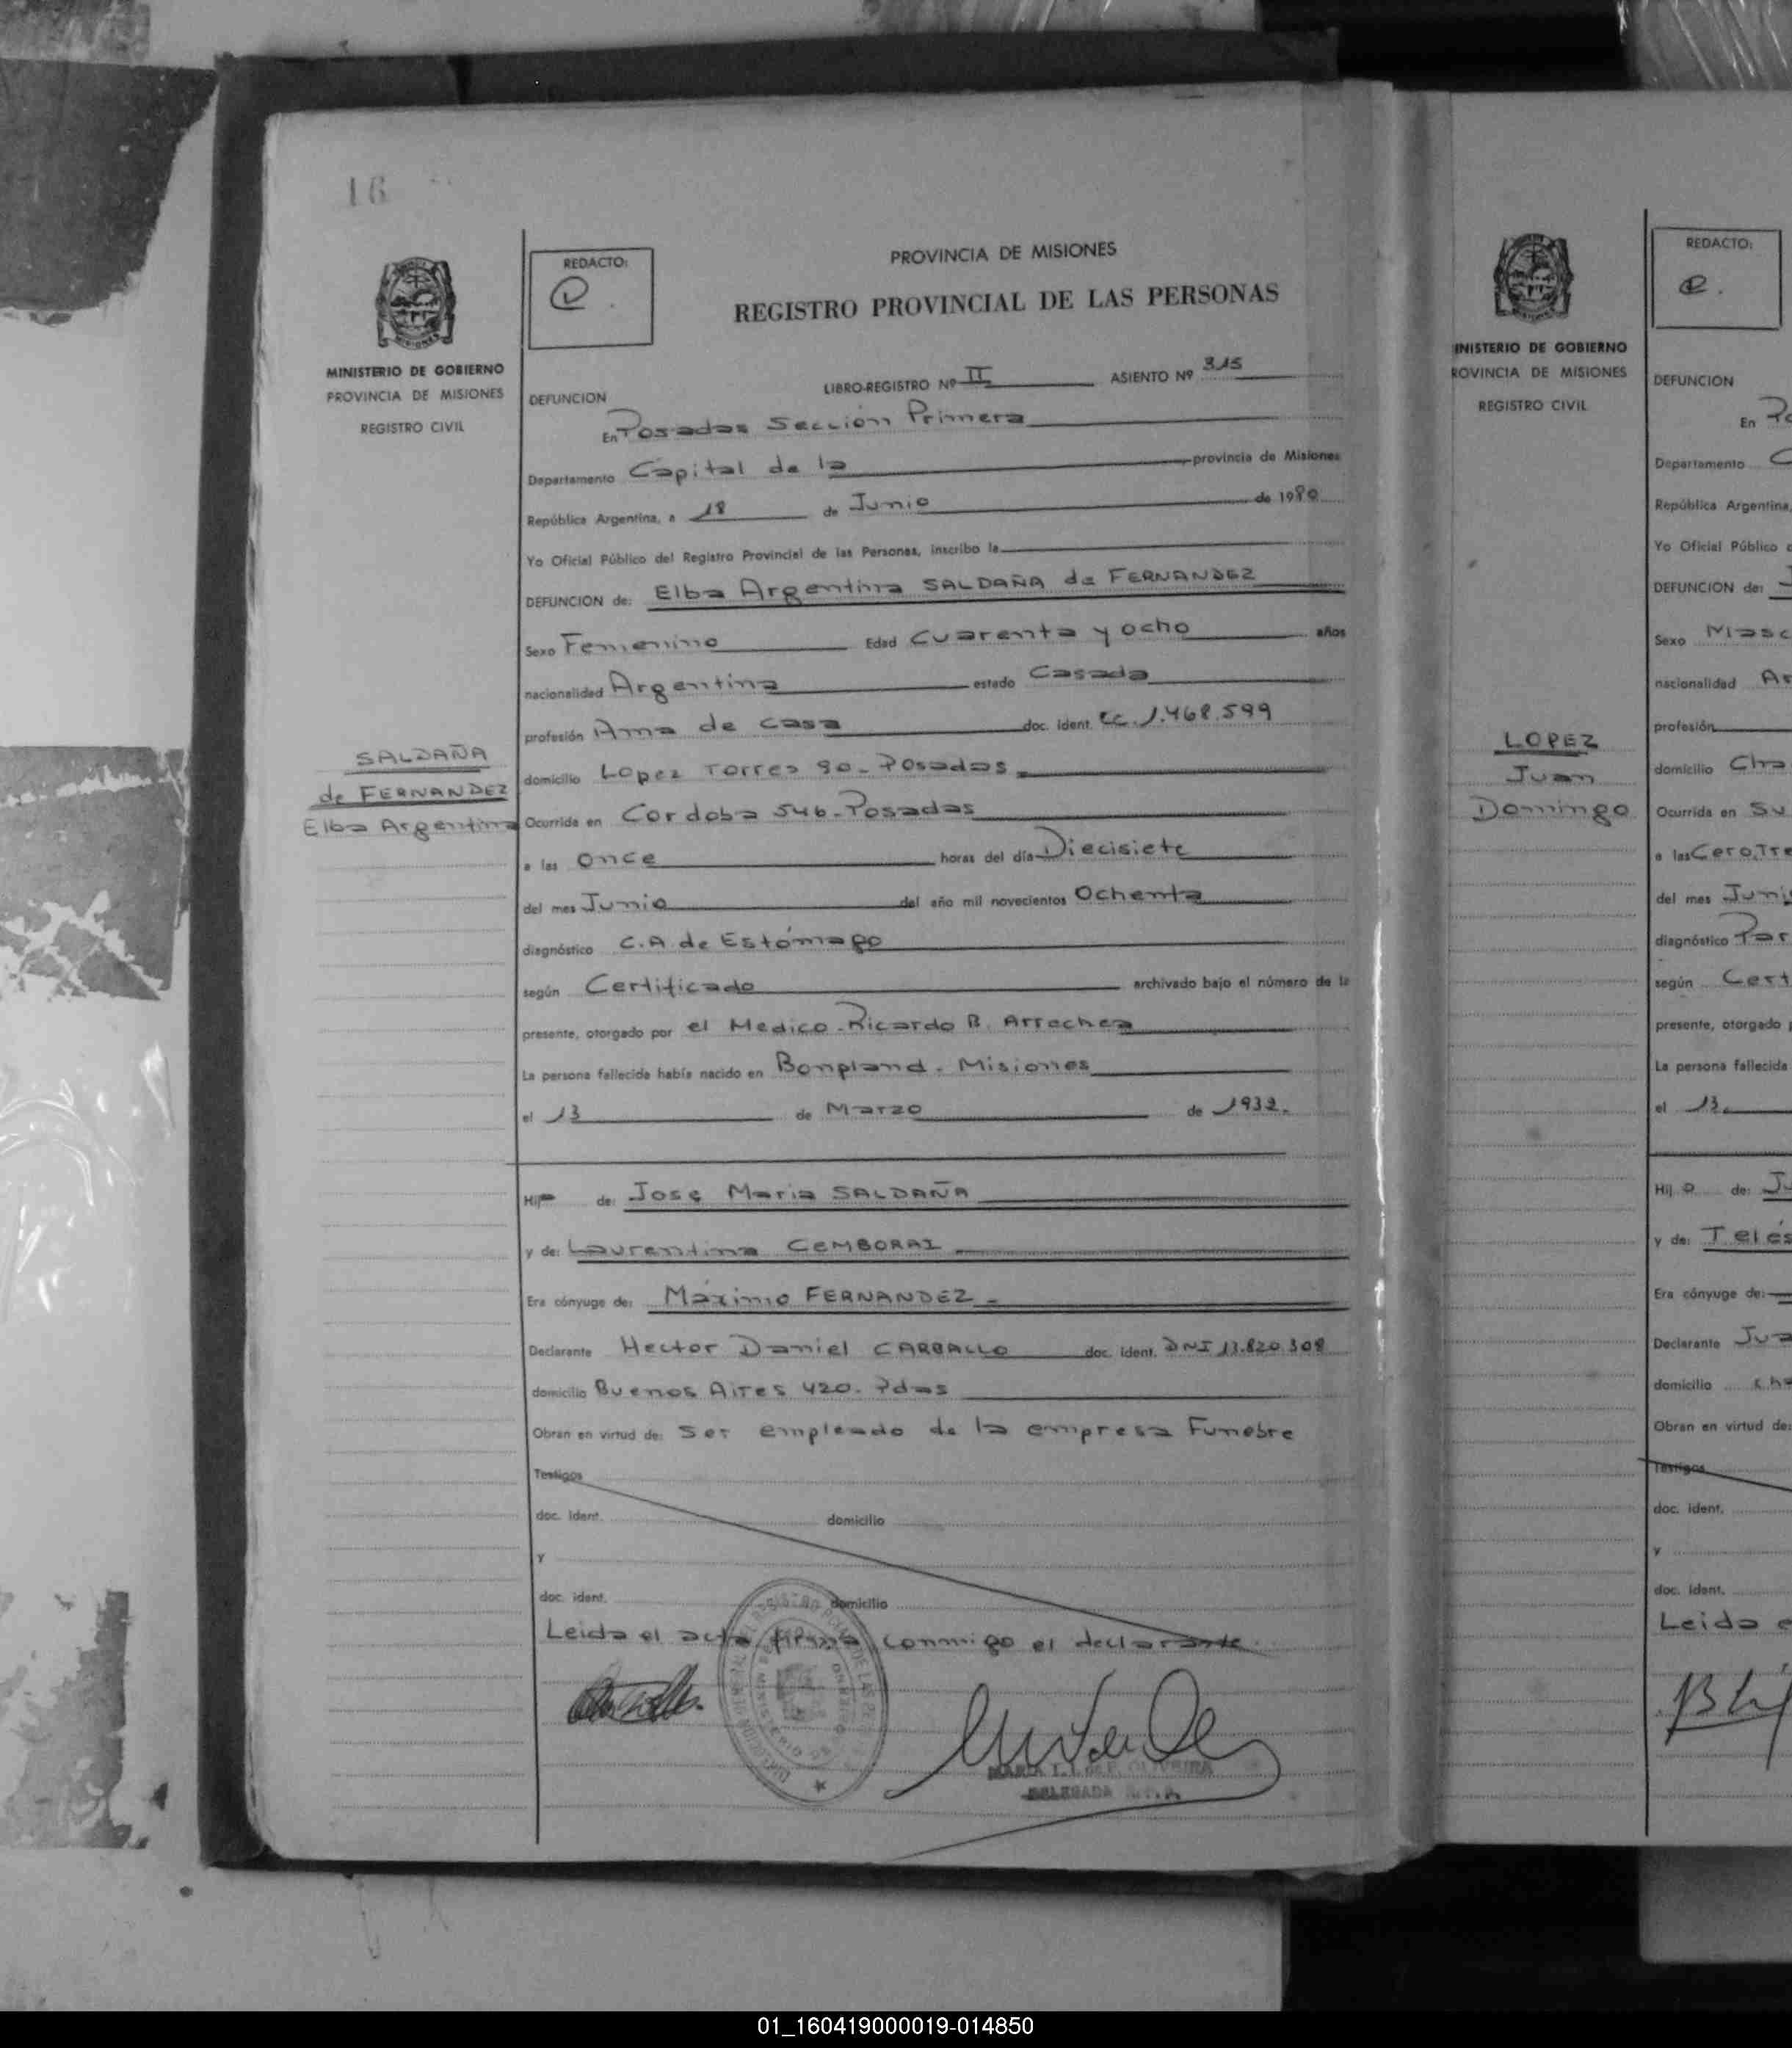 16
MINISTERIO DE GOBIERNO
PROVINCIA DE MISIONES
REGISTRO CIVIL
SALDAÑA
de FERNANDEZ
Elba Argentina
REDACTO:
PROVINCIA DE MISIONES
REGISTRO PROVINCIAL DE LAS PERSONAS
LIBRO-REGISTRO Nº II ASIENTO Nº 315
DEFUNCION
En Posadas Sección Primera
Departamento Capital de la provincia de Misiones
República Argentina, a 18 de Junio de 1980
Yo Oficial Público del Registro Provincial de las Personas, inscribo la
DEFUNCION de: Elba Argentina SALDAÑA de FERNANDEZ
Sexo Femenino Edad Cuarenta y ocho años
nacionalidad Argentina estado Casada
profesión Ama de casa doc. ident. CC. 1.468.599
domicilio Lopez Torres 90 - Posadas
Ocurrida en Cordoba 546 - Posadas
a las Once horas del día Diecisiete
del mes Junio del año mil novecientos Ochenta
diagnóstico C.A. de Estómago
según Certificado archivado bajo el número de la
presente, otorgado por el Medico - Ricardo B. Arrechea
La persona fallecida había nacido en Bonpland - Misiones
el 13 de Marzo de 1932.
Hija de: Jose Maria SALDAÑA
y de: Laurentina CEMBORAI
Era cónyuge de: Máximo FERNANDEZ
Declarante Hector Daniel CARBALLO doc. ident. DNI 13.820.308
domicilio Buenos Aires 420. Pdas
Obran en virtud de: Ser empleado de la empresa Funebre
Testigos
doc. ident. domicilio
y
doc. ident. domicilio
Leida el acta firma conmigo el declarante.
OLIVEIRA
DELEGADA
INISTERIO DE GOBIERNO
ROVINCIA DE MISIONES
REGISTRO CIVIL
LOPEZ
Juan
Domingo
REDACTO:
DEFUNCION
En Po
Departamento C
República Argentina,
Yo Oficial Público d
DEFUNCION de: J
Sexo Masc
nacionalidad Ar
profesión
domicilio Cha
Ocurrida en Su
a las Cero, Tre
del mes Juni
diagnóstico Par
según Cert
presente, otorgado p
La persona fallecida
el 13
Hijo de: Ju
y de: Teles
Era cónyuge de:
Declarante Jua
domicilio cha
Obran en virtud de:
Testigos
doc. ident.
y
doc. ident.
Leida e
01_160419000019-014850